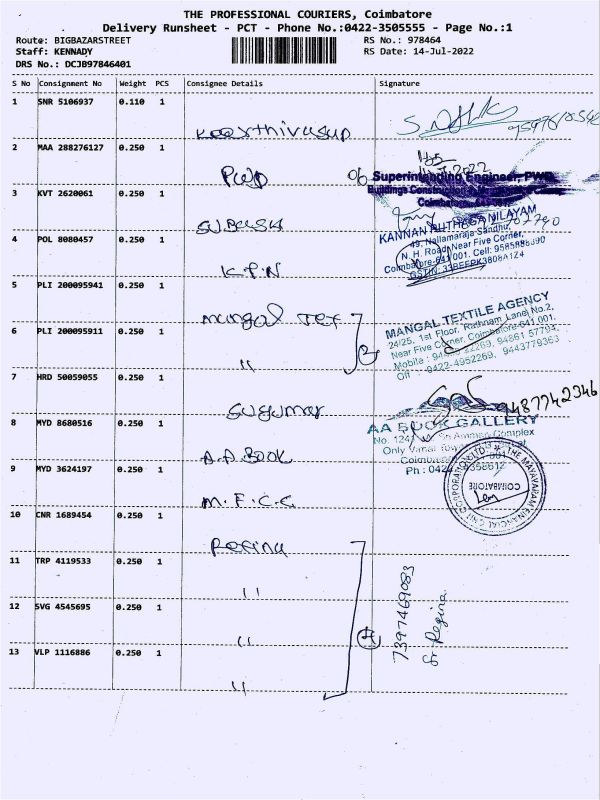 THE PROFESSIONAL COURIERS, Coimbatore
Delivery Runsheet - PCT - Phone No.:0422-3505555 - Page No.:1
Route: BIGBAZARSTREET
RS No.: 978464
Staff: KENNADY
RS Date: 14-Jul-2022
DRS No.: DCJB97846401
S No Consignment No Weight PCS Consignee Details Signature
1 SNR 5106937 0.110 1
Keerthivasan
2 MAA 288276127 0.250 1
PWD
Superintending Engineer, PWD.
Buildings Construction
Coimbatore
3 KVT 2620061 0.250 1
KANNAN RUTHAGA NILAYAM
49, Nallamaraja Sandhu,
N. H. Road, Near Five Corner,
Coimbatore-641 001. Cell:
4 POL 8080457 0.250 1
K.P.N
5 PLI 200095941 0.250 1
Mangal Tex
MANGAL TEXTILE AGENCY
24/25, 1st Floor, Rathnam Lane, No.2,
Near Five Corner, Coimbatore-641 001.
Off : 0422-4952269, 9443779363
6 PLI 200095911 0.250 1
"
7 HRD 50059055 0.250 1
Sugumar
9487742346
AA BOOK GALLERY
8 MYD 8680516 0.250 1
A.A. Book
9 MYD 3624197 0.250 1
M.F.C.C
COIMBATORE
10 CNR 1689454 0.250 1
Regina
11 TRP 4119533 0.250 1
"
7397469083
Sr Regina
12 SVG 4545695 0.250 1
"
4
13 VLP 1116886 0.250 1
"